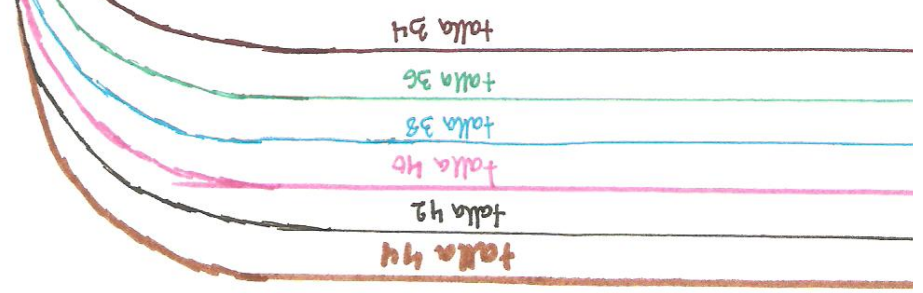 talla 34
talla 36
talla 38
talla 40
talla 42
talla 44